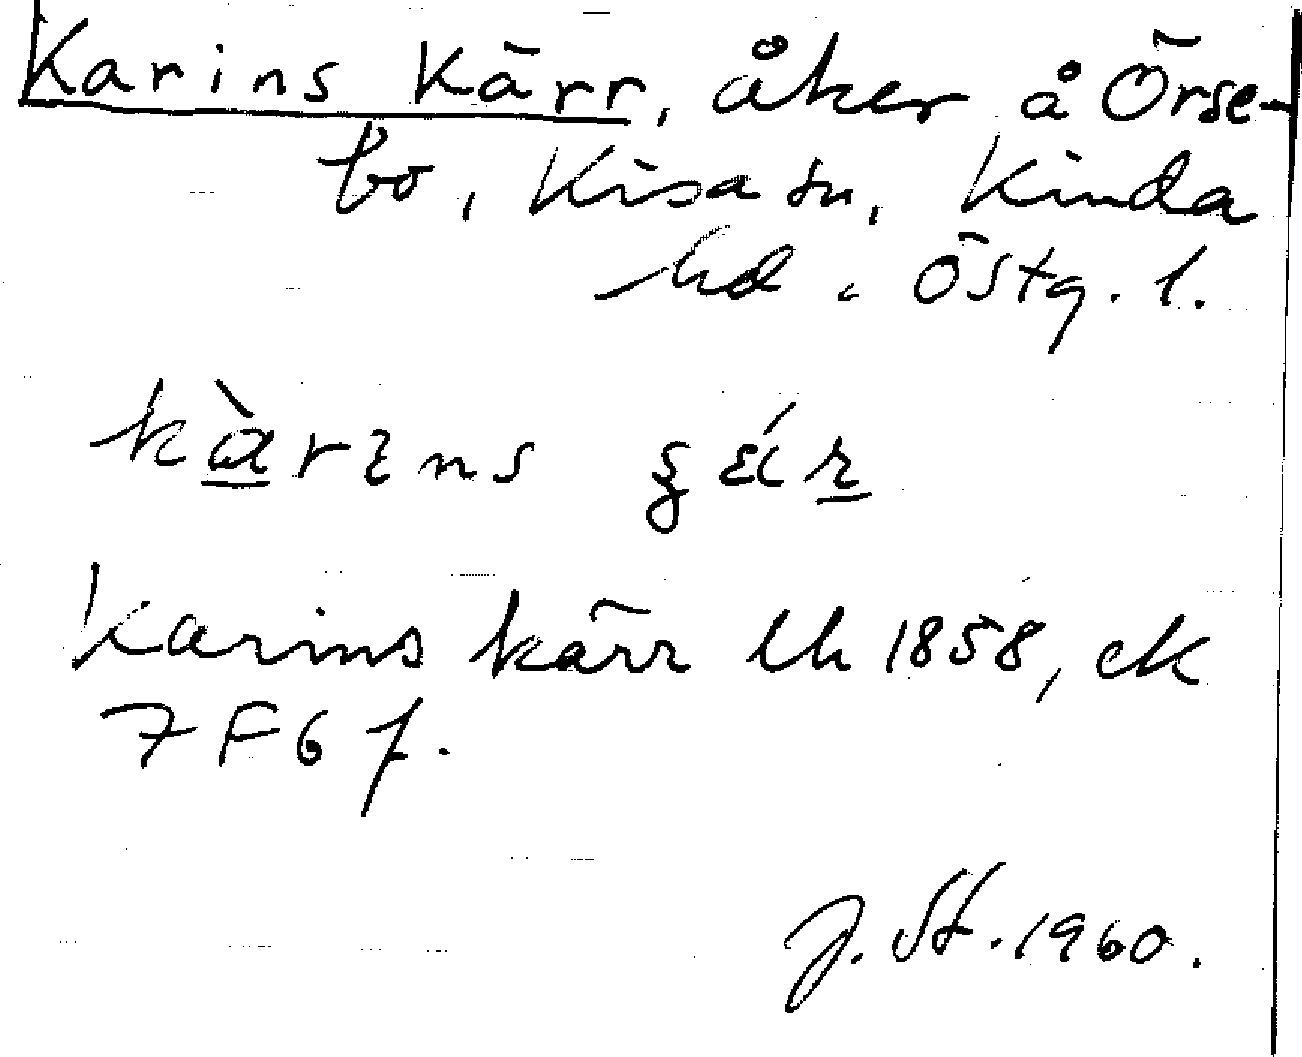 Karins Kärr, åker å Örse-
bo, Kisa sn, Kinda
hd. Östg. l.
kàrɩns
Karins kärr Lh 1858, ek
7 F 6 f.
J. St. 1960.